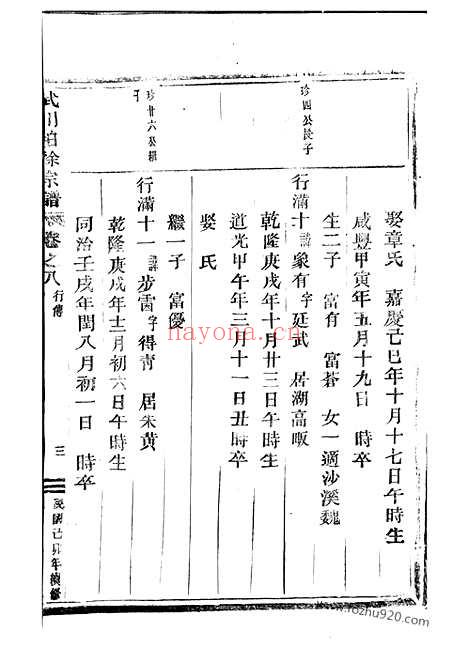 娶章氏 嘉慶己巳年十月十七日午時生
咸豐甲寅年五月十九日 時卒
生二子 富有 富蒼 女一適沙溪魏
珍四公長子
行滿十 諱象有字廷武 居湖高畈
乾隆庚戌年十月廿三日午時生
道光甲午年三月十一日丑時卒
娶氏
繼一子 富優
珍廿六公繼子
行滿十一 諱步雲字得靑 居朱黄
乾隆庚戌年十二月初六日午時生
同治壬戌年閏八月初一日 時卒
武川柏徐宗譜 卷之八 行傳 三 民國己卯年續修
nayona.cn
www.rozhu920.com